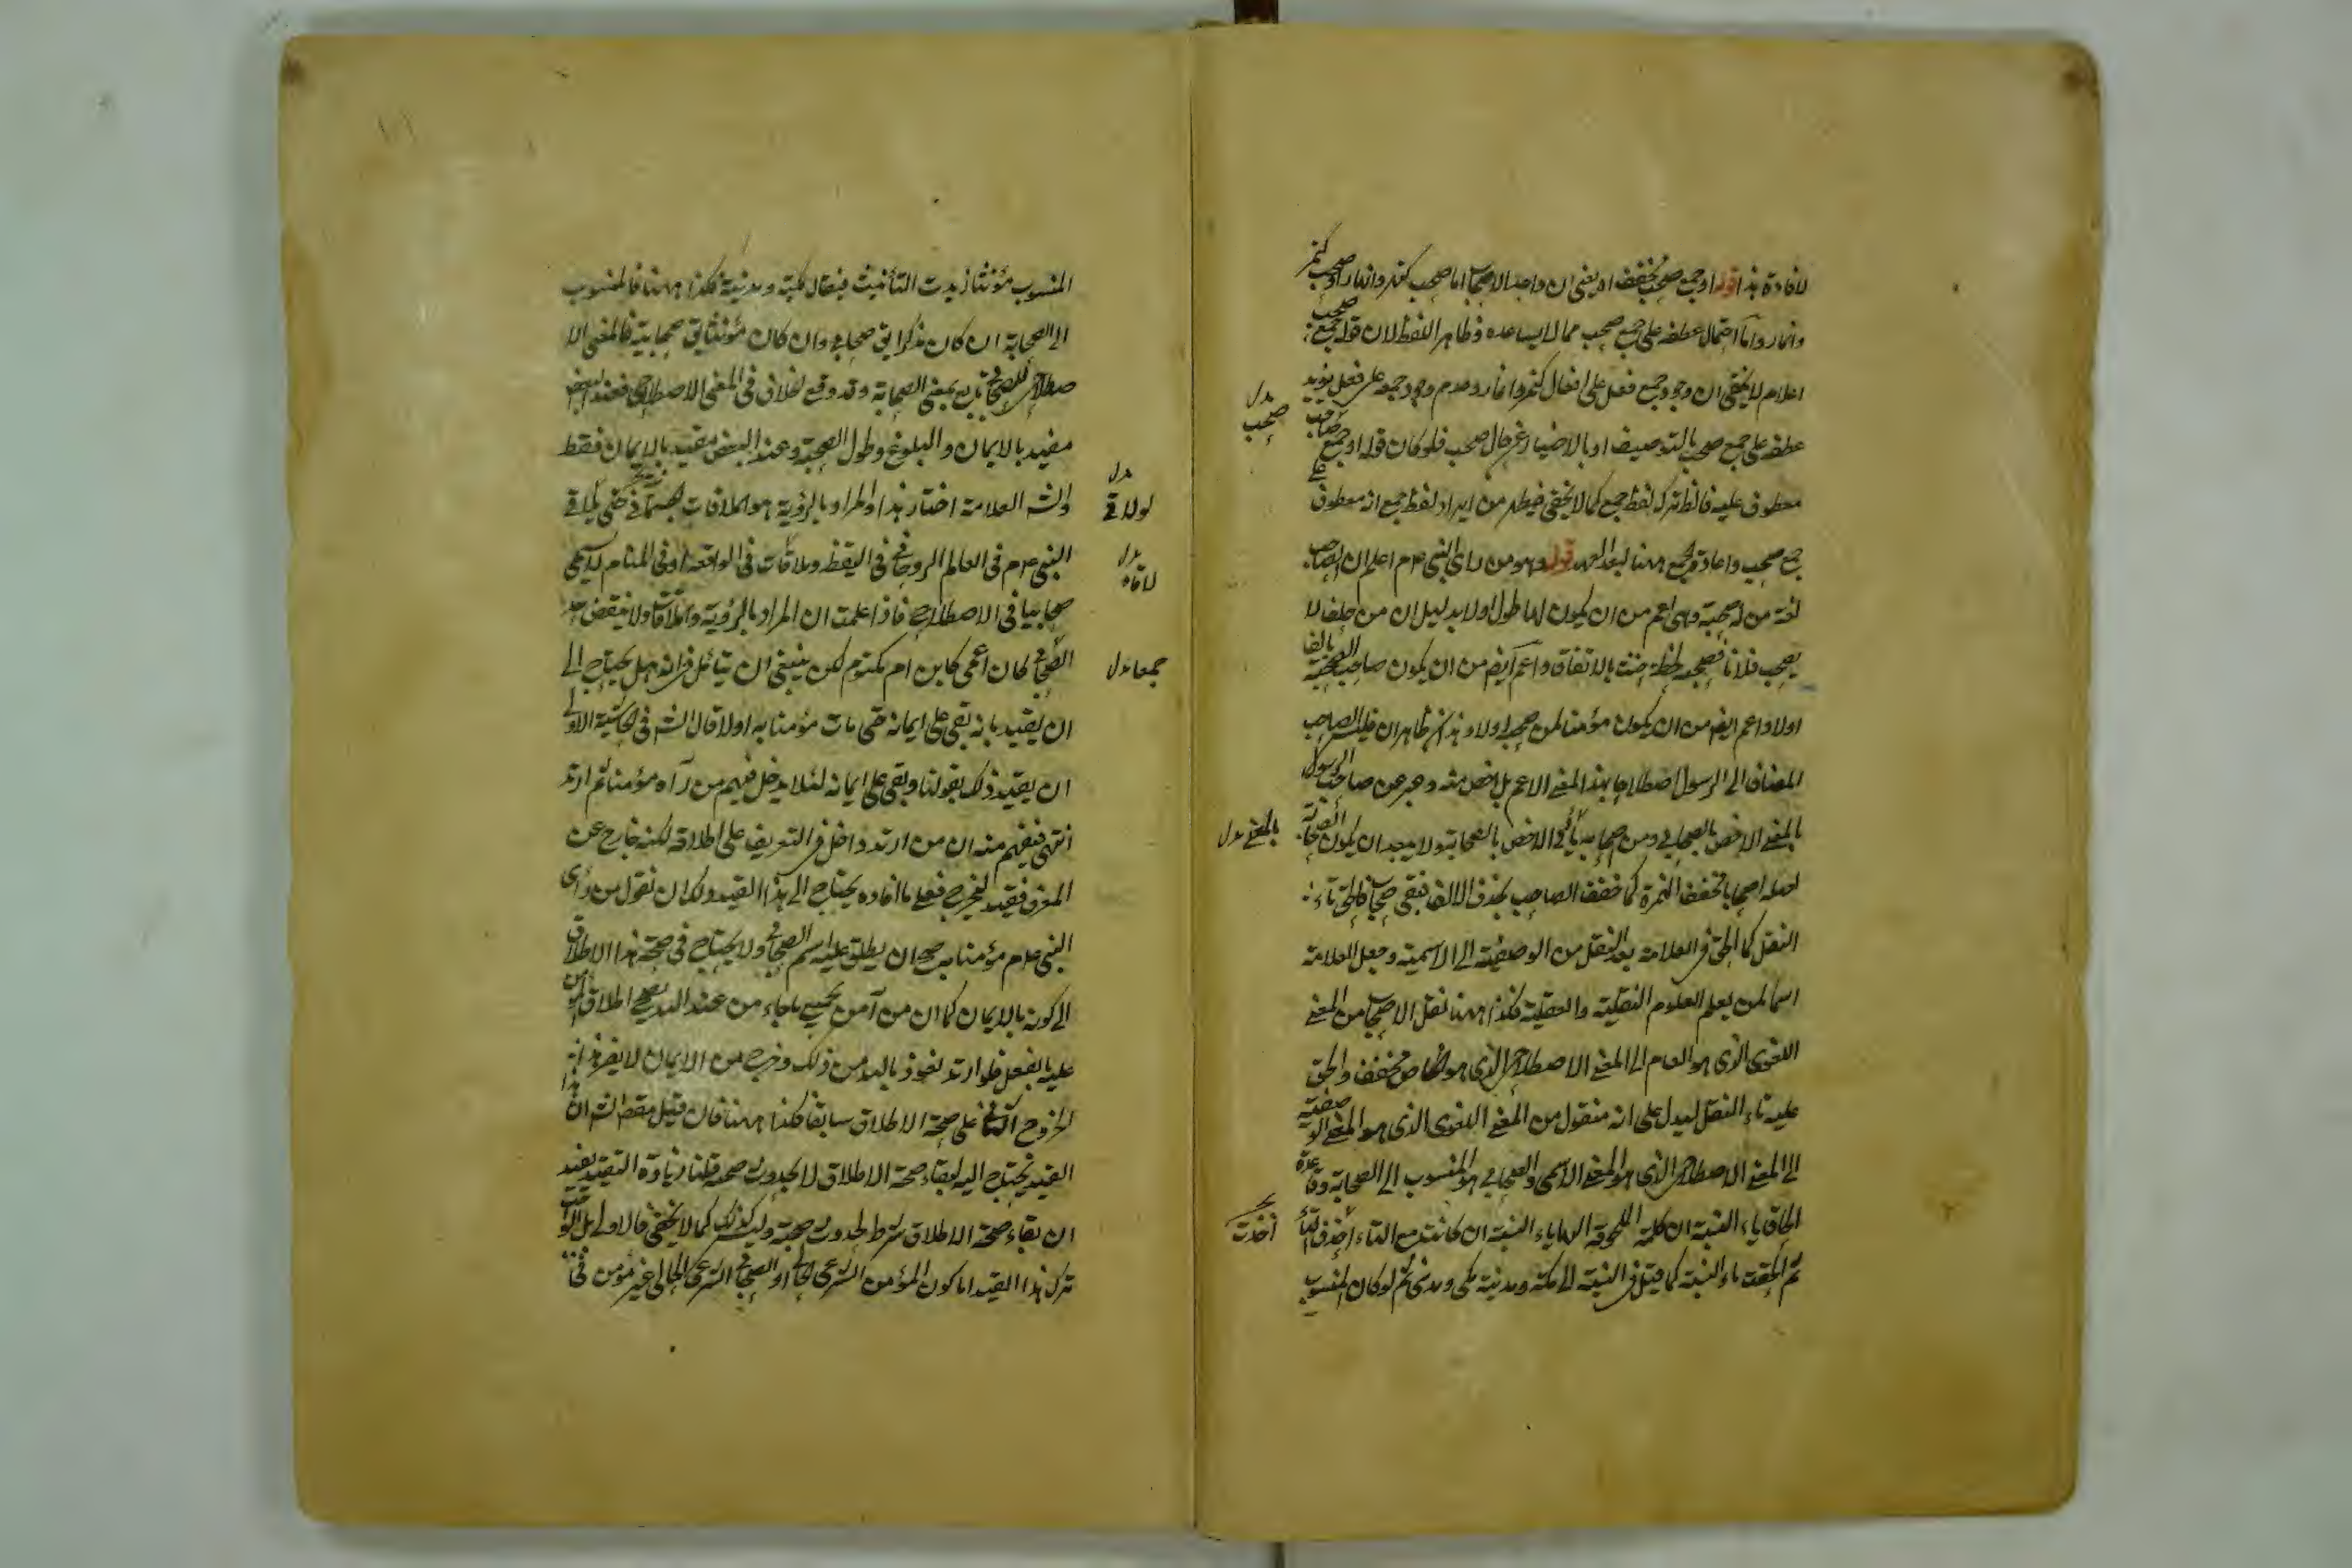 لافادة هذا قوله او جمع صحب مخفف اه يعنى ان واحد الاصحاب اما صحب كنهر وانهار او صحب كنمر
وانمار واما احتمال عطفه على جمع صحب مما لا يساعده ظاهر اللفظ لان قوله جمع
اعلام لا يخفى ان وجود جمع فعل على افعال كنمر وانمار وعدم وجود جمعه على فعل يؤيد
عطفه على جمع صحب بالتوصيف او بالاضافة صحب فلو كان قوله او جمع
معطوف عليه فالظ ترك لفظ جمع كما لا يخفى فيظهر من ايراد لفظ جمع انه معطوف على
جمع صحب واعادة الجمع ههنا لبعد العهد قوله وهو من راى النبى عم اعلم ان الصاحب
لغة من له صحبة وهى اعم من ان يكون لها طول اولا بدليل ان من حلف لا
يصحب فلانا فصحبه لحظة حنث بالاتفاق واعم ايضا من ان يكون صاحب الصحبة بالغا
اولا واعم ايضا من ان يكون مؤمنا لمن صحبه اولا وهذا ظاهر ان ليس الصاحب
المضاف الى الرسول اصطلاحا بهذا المعنى الاعم بل اخص منه وعبر عن صاحب الرسول
بالمعنى الاخص بالصحابى ومن اصحابه بالمعنى الاخص بالصحابة ولا يبعد ان يكون الصحابة
اصله اصحابا فخفف الهمزة كما خفف الصاحب بحذف الالف فبقى صحاب فالحق تاء
النقل كما الحق فى العلامة بعد النقل من الوصفية الى الاسمية وجعل العلامة
اسما لمن يعلم العلوم النقلية والعقلية فكذا ههنا نقل الاصحاب من المعنى
اللغوى الذى هو العام الى المعنى الاصطلاحى الذى هو الخاص فخفف والحق
عليه تاء النقل ليدل على انه منقول من المعنى اللغوى الذى هو المعنى الوصفية
الى المعنى الاصطلاحى الذى هو المعنى الاسمى والصحابى هو المنسوب الى الصحابة وقاعدة
الحاق ياء النسبة ان كلمة الملحوقة اليها ياء النسبة ان كانت مع التاء احذف التاء
ثم الحقت ياء النسبة كما قيل فى النسبة الى مكة ومدينة مكى ومدنى ثم لو كان المنسوب
بدل
صحب
بالمعنى بدل
أخذت
المنسوب مؤنثا زيدت التأنيث فيقال مكية ومدنية فكذا ههنا فالمنسوب
الى الصحابة ان كان مذكرا يق صحابى وان كان مؤنثا يق صحابية فالمعنى الا
صطلاحى للصحابى تابع بمعنى الصحابة وقد وقع الخلاف فى المعنى الاصطلاحى فعند البعض
مقيد بالايمان والبلوغ وطول الصحبة وعند البعض مقيد بالايمان فقط
والش العلامة اختار هذا والمراد بالرؤية هو الملاقات بجسمانى حتى يلاقى
النبى عم فى العالم الروحانى فى اليقظة وملاقات فى الواقعة او فى المنام لا يسمى
صحابيا فى الاصطلاح فاذا علمت ان المراد بالرؤية والملاقات ولا ينقض
الصحابى كان اعمى كابن ام مكتوم لكن ينبغى ان يتأمل فى انه هل يحتاج الى
ان يقيد بانه بقى على ايمانه حتى مات مؤمنا به اولا قال الش فى الحاشية الاولى
ان يقيد ذلك بقولنا وبقى على ايمانه لئلا يدخل فيهم من رآه مؤمنا ثم ارتد
انتهى فيفهم منه ان من ارتد داخل فى التعريف على اطلاقه لكنه خارج عن
المعرف فقيد ليخرج فعلى ما افاده يحتاج الى هذا القيد ولك ان تقول من رأى
النبى عم مؤمنا به صح ان يطلق عليه اسم الصحابى ولا يحتاج فى صحة هذا الاطلاق
الى كونه بالايمان كما ان من آمن بجميع ما جاء من عند الله يصح اطلاق المؤمن
عليه بالفعل فلو ارتد نعوذ بالله من ذلك وخرج من الايمان لا يضر هذا
الخروج على صحة الاطلاق سابقا فكذا ههنا فان قيل مقصد الش ان هذا
القيد يحتاج اليه لبقاء صحة الاطلاق لا لحدوث صحته قلنا زيادة التقييد يفيد
ان بقاء صحة الاطلاق شرط لحدوث صحبة وليس كذلك كما لا يخفى فالاولى بل الواجب
ترك هذا القيد اما كون المؤمن الشرعى او الصحابى الشرعى الحالى غير مؤمن
بدل
بدل
لاقاه
جمعا بدل